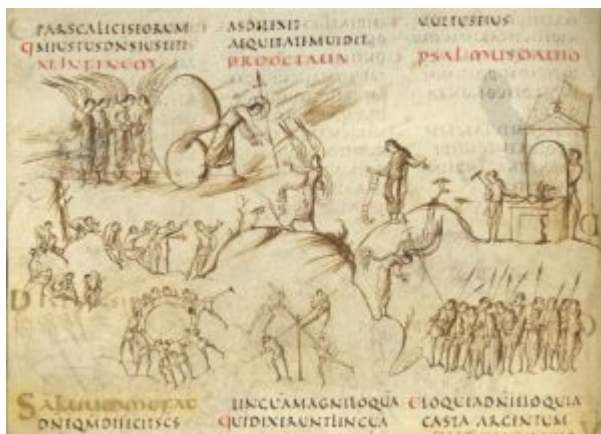 PARSCALICISEORUM
QMIUSTUSDNSIUSTITI
XI INFINEM
ASDILEXIT
AEQUITATEMUIDIT
PROOCTAUA
UULTUSEIUS
PSALMUSDAUID
SALUUMMEFAC
DNEQMDEFECITSCS
LINGUAMAGNILOQUA
QUIDIXERUNTLINGUA
ELOQUIADNIELOQUIA
CASTAARGENTUM